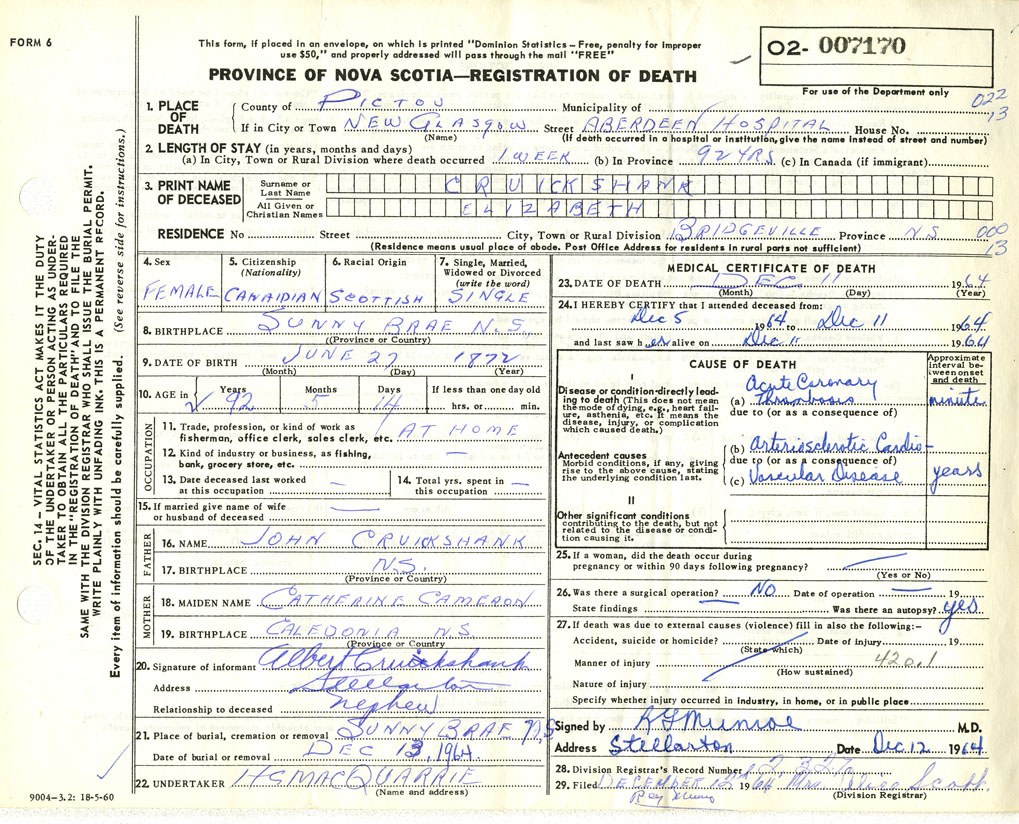 FORM 6
This form, if placed in an envelope, on which is printed "Dominion Statistics – Free, penalty for improper
use $50," and properly addressed will pass through the mail "FREE"
PROVINCE OF NOVA SCOTIA—REGISTRATION OF DEATH
02- 007170
For use of the Department only
022
13
1. PLACE OF DEATH
County of PICTOU Municipality of
If in City or Town NEW GLASGOW Street ABERDEEN HOSPITAL House No.
(Name) (If death occurred in a hospital or institution, give the name instead of street and number)
2. LENGTH OF STAY (in years, months and days)
(a) In City, Town or Rural Division where death occurred 1 WEEK (b) In Province 92 YRS. (c) In Canada (if immigrant)
3. PRINT NAME OF DECEASED
Surname or Last Name CRUICKSHANK
All Given or Christian Names ELIZABETH
RESIDENCE No Street City, Town or Rural Division BRIDGEVILLE Province N.S
(Residence means usual place of abode. Post Office Address for residents in rural parts not sufficient)
000
13
4. Sex
FEMALE
5. Citizenship
(Nationality)
CANAIDIAN
6. Racial Origin
SCOTTISH
7. Single, Married,
Widowed or Divorced
(write the word)
SINGLE
8. BIRTHPLACE SUNNY BRAE N.S.
((Province or Country)
9. DATE OF BIRTH JUNE 27 1872
(Month) (Day) (Year)
10. AGE in
Years Months Days If less than one day old
92 5 14 hrs. or min.
OCCUPATION
11. Trade, profession, or kind of work as
fisherman, office clerk, sales clerk, etc. AT HOME
12. Kind of industry or business, as fishing,
bank, grocery store, etc. —
13. Date deceased last worked
at this occupation —
14. Total yrs. spent in
this occupation —
15. If married give name of wife
or husband of deceased —
FATHER
16. NAME JOHN CRUICKSHANK
17. BIRTHPLACE N.S.
(Province or Country)
MOTHER
18. MAIDEN NAME CATHERINE CAMERON
19. BIRTHPLACE CALEDONIA N.S.
(Province or Country)
20. Signature of informant Albert Cruickshank
Address Stellarton
Relationship to deceased nephew
21. Place of burial, cremation or removal SUNNY BRAE N.S
Date of burial or removal DEC 13, 1964
22. UNDERTAKER H G MACQUARRIE
(Name and address)
9004–3.2: 18-5-60
MEDICAL CERTIFICATE OF DEATH
23. DATE OF DEATH DEC 11 1964
(Month) (Day) (Year)
24. I HEREBY CERTIFY that I attended deceased from:
Dec 5 1964 to Dec 11 1964
and last saw her alive on Dec 11 1964
CAUSE OF DEATH
Approximate
interval be-
tween onset
and death
I
Disease or condition directly lead-
ing to death (This does not mean
the mode of dying, e.g., heart fail-
ure, asthenia, etc. It means the
disease, injury, or complication
which caused death.)
Acute Coronary
(a) Thrombosis minute
due to (or as a consequence of)
Antecedent causes
Morbid conditions, if any, giving
rise to the above cause, stating
the underlying condition last.
(b) Arteriosclerotic Cardio-
due to (or as a consequence of)
(c) Vascular Disease years
II
Other significant conditions
contributing to the death, but not
related to the disease or condi-
tion causing it.
25. If a woman, did the death occur during
pregnancy or within 90 days following pregnancy? —
(Yes or No)
26. Was there a surgical operation? NO Date of operation — 19
State findings — Was there an autopsy? yes
27. If death was due to external causes (violence) fill in also the following:–
Accident, suicide or homicide? Date of injury 19
(State which)
Manner of injury 420.1
(How sustained)
Nature of injury
Specify whether injury occurred in industry, in home, or in public place
Signed by Munroe M.D.
Address Stellarton Date Dec. 12 1964
28. Division Registrar's Record Number
29. Filed DECEMBER 1964 Mrs Scott
(Division Registrar)
SEC. 14 – VITAL STATISTICS ACT MAKES IT THE DUTY
OF THE UNDERTAKER OR PERSON ACTING AS UNDER-
TAKER TO OBTAIN ALL THE PARTICULARS REQUIRED
IN THE "REGISTRATION OF DEATH" AND TO FILE THE
SAME WITH THE DIVISION REGISTRAR WHO SHALL ISSUE THE BURIAL PERMIT.
WRITE PLAINLY WITH UNFADING INK. THIS IS A PERMANENT RECORD.
Every item of information should be carefully supplied. (See reverse side for instructions.)